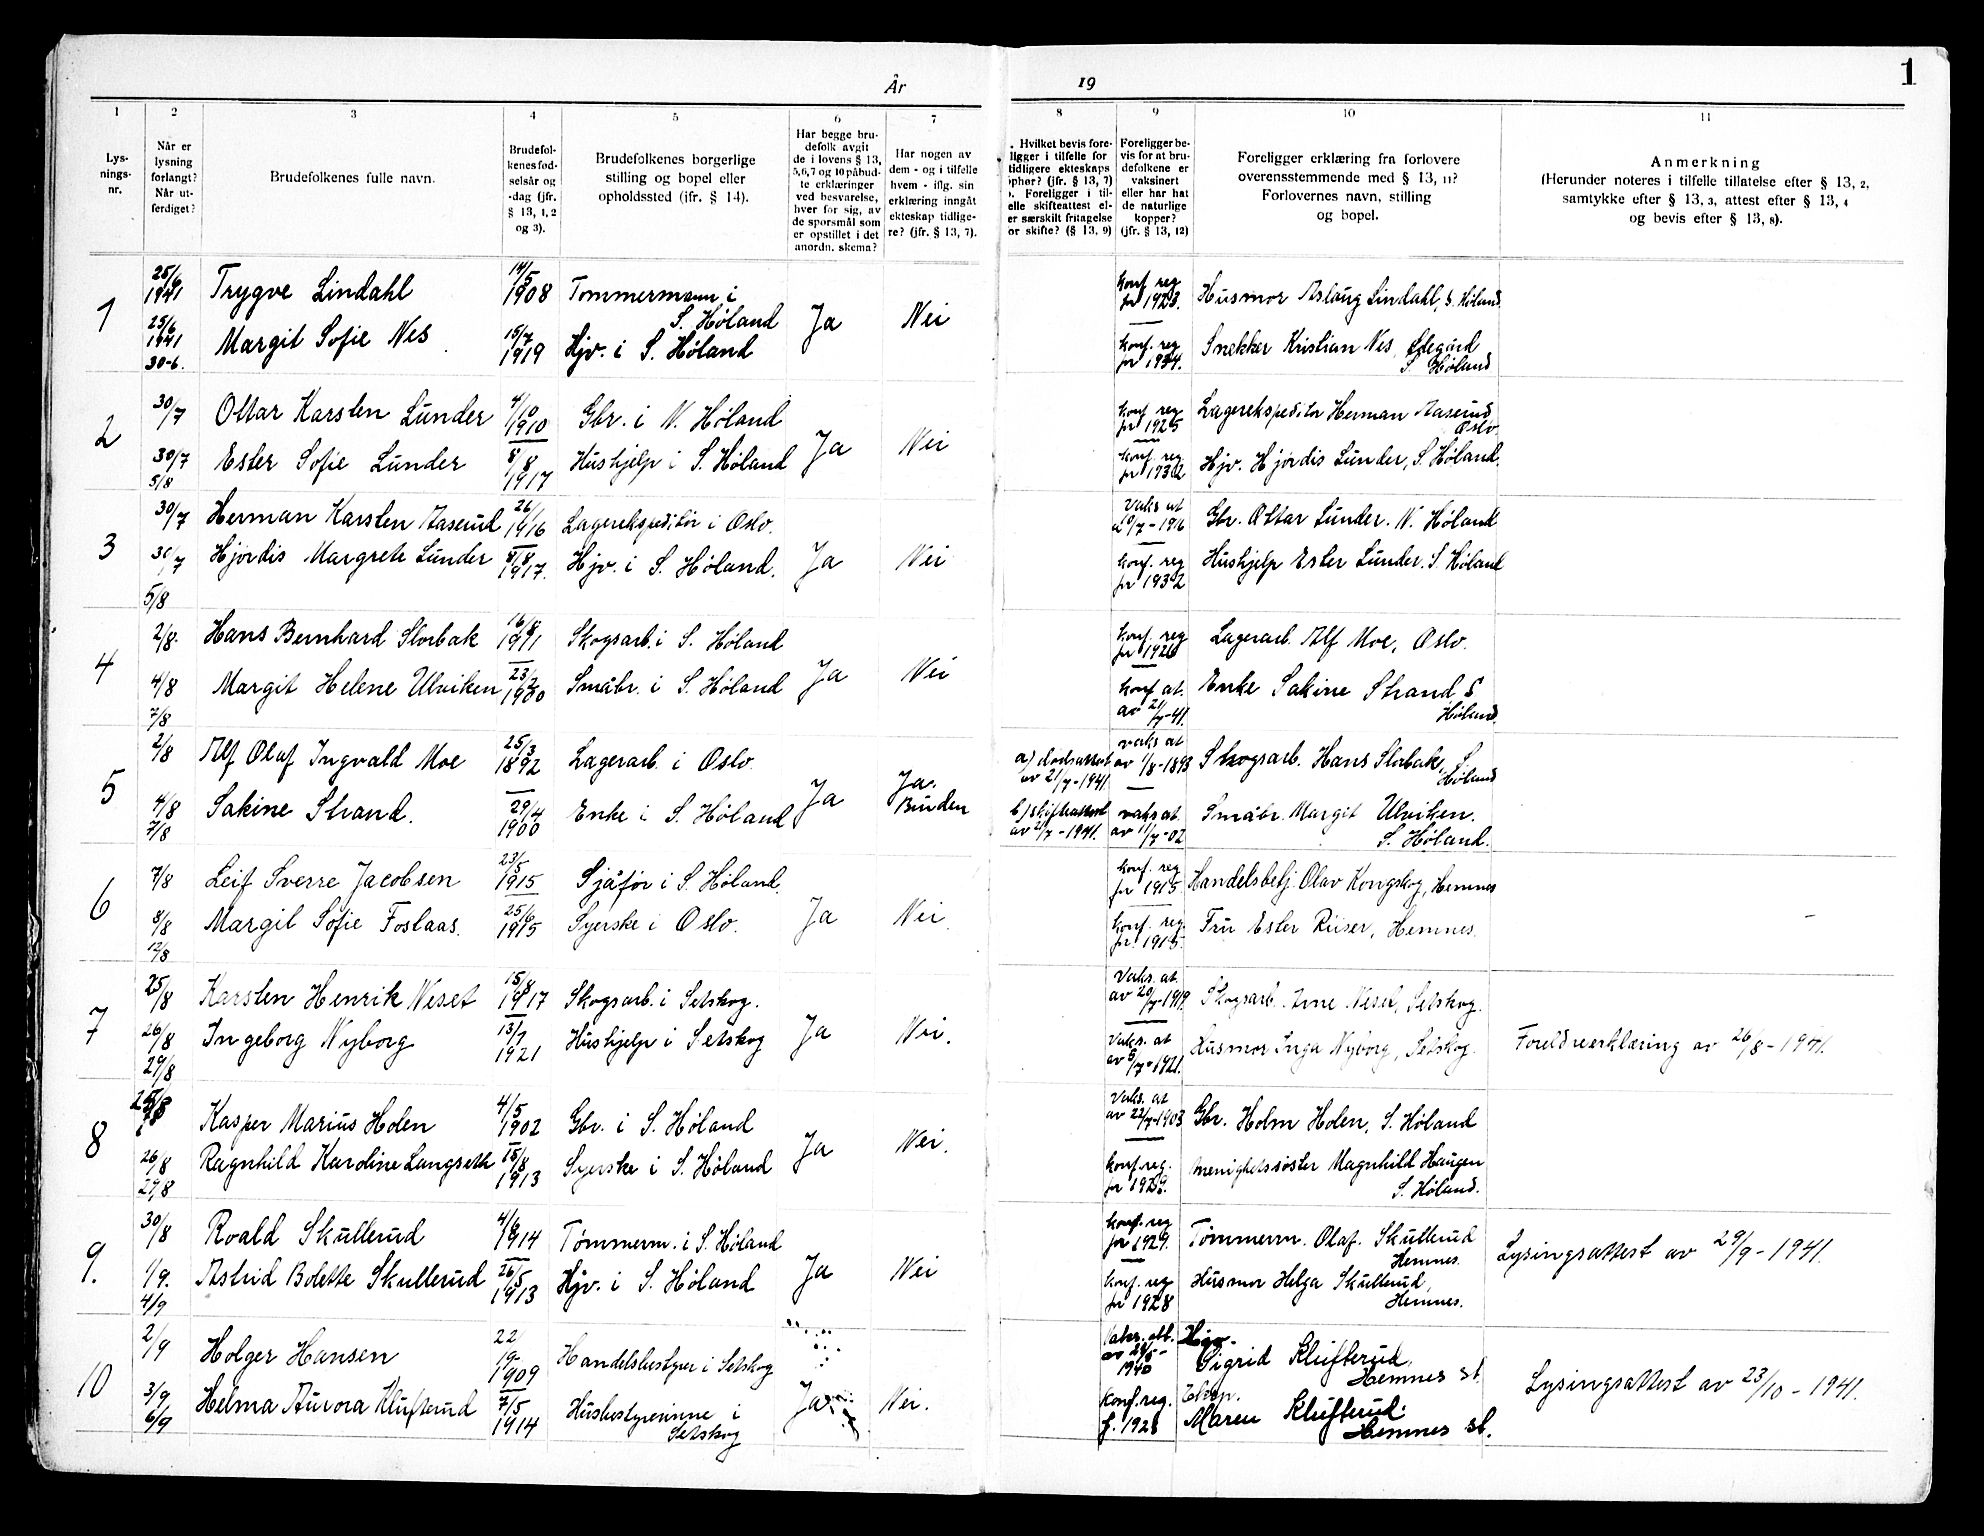 År
19
1
1
2
3
4
5
6
7
8
9
10
11
Lys-
nings-
nr.
Når er
lysning
forlangt?
Når ut-
ferdiget?
Brudefolkenes fulle navn.
Brudefol-
kenes fød-
selsår og
-dag (jfr.
§ 13, 1, 2
og 3).
Brudefolkenes borgerlige
stilling og bopel eller
opholdssted (ifr. § 14).
Har begge bru-
defolk avgit
de i lovens § 13,
5,6,7 og 10 påbud-
te erklæringer
ved besvarelse,
hver for sig, av
de sporsmål som
er opstillet i det
anordn. skema?
Har nogen av
dem - og i tilfelle
hvem - iflg. sin
erklæring inngåt
ekteskap tidlige-
re? (jfr. § 13, 7).
. Hvilket bevis fore-
ligger i tilfelle for
tidligere ekteskaps
ophør? (jfr. § 13, 7)
. Foreligger i til-
elle skifteattest el-
er særskilt fritagelse
or skifte? (§ 13, 9)
Foreligger be-
vis for at bru-
defolkene er
vaksinert
eller har hat
de naturlige
kopper?
(jfr. § 13, 12)
Foreligger erklæring fra forlovere
overensstemmende med § 13, 11?
Forlovernes navn, stilling
og bopel.
Anmerkning
(Herunder noteres i tilfelle tillatelse efter § 13, 2,
samtykke efter § 13, 3, attest efter § 13, 4
og bevis efter § 13, 8).
1
25/6
1941
Trygve Lindahl
14/5
1908
Tømmermann i
S. Høland
Ja
Nei
Konf. reg
for 1923.
Husmor Aslaug Lindahl, S. Høland.
25/6
1941
30-6.
Margit Sofie Nes
15/7
1919
Hjv. i S. Høland
Konf. reg
for 1934.
Snekker Kristian Nes,
S. Høland
2
30/7
Ottar Karsten Lunder
4/10
1910
Gbr. i N. Høland
Ja
Nei
Konf. reg
for 1925
Lagerekspeditør Herman Aaserud
Oslo.
30/7
5/8
Ester Sofie Lunder
8/8
1917
Hushjelp i S. Høland
Konf. reg
for 1932
Hjv. Hjørdis Lunder, S. Høland.
3
30/7
Herman Karsten Aaserud
26/1
1916
Lagerekspeditør i Oslo.
Ja
Nei
Vaks at
-1916
Gbr. Ottar Lunder. N. Høland
30/7
5/8
Hjørdis Margrete Lunder
8/8
1917.
Hjv. i S. Høland.
Konf. reg
for 1932
Hushjelp Ester Lunder. S. Høland
4
2/8.
Hans Bernhard Storbak
16/8
1911
Skogsarb. i S. Høland
Ja
Nei
Konf. reg
for 1926
Lagerarb. Alf Moe, Oslo.
4/8
7/8
Margit Helene Ulviken
23/2
1900
Småbr. i S. Høland
Konf at.
av 21/7-41.
Enke Sakine Strand S
Høland.
5
2/8
Alf Olaf Ingvald Moe
25/3
1892
Lagerarb. i Oslo.
Ja
Ja.
Bruden
a) dødsattest
av 21/7-1941.
vaks at
av 1/8-1893
Skogsarb. Hans Storbak, S.
Høland
4/8
7/8
Sakine Strand.
29/4
1900
Enke i S. Høland
b) skifteattest
av 21/7-1941.
vaks at.
av 11/7-02
Småbr. Margit Ulviken.
S. Høland.
6
7/8
Leif Sverre Jacobsen
23/5
1915
Sjåfør i S. Høland.
Ja
Nei.
Konf. reg
for 1915.
Handelsbetj. Olav Kongskog, Hemnes
8/8
12/8
Margit Sofie Foslaas.
25/6
1915
Syerske i Oslo.
Konf. reg.
for 1915.
Fru Ester Riiser, Hemnes.
7
25/8
Karsten Henrik Neset
15/8
1917
Skogsarb. i Setskog.
Ja
Nei.
Vaks. at
av 20/7-1919.
Skogsarb. Arne Neset, Setskog.
26/8
29/8
Ingeborg Nyborg
13/7
1921
Hushjelp i Setskog
Vaks. at
av 5/7-1921.
Husmor Inga Nyborg, Setskog.
Foreldreerklæring av 26/8-1941.
8
25/8
Kasper Marius Holen
4/5
1902
Gbr. i S. Høland
Ja
Nei.
Vaks. at
av 22/7-1903
Gbr. Holm Holen, S. Høland
26/8
29/8
Ragnhild Karoline Langseth
15/8
1913
Syerske i S. Høland
Konf. reg.
for 1929.
Menighetssøster Magnhild Haugen
S. Høland.
9.
30/8
Roald Skullerud
4/9
1914
Tømmerm. i S. Høland
Ja
Nei
Konf. reg
for 1929.
Tømmerm. Olaf. Skullerud
Hemnes.
Lysingsattest av 29/9-1941.
1/9.
4/9
Astrid Bolette Skullerud
26/5
1913
Hjv. i S. Høland
Konf. reg
for 1928
Husmor Helga Skullerud,
Hemnes.
10
2/9
Holger Hansen
22
1909
Handelsbestyrer i Setskog
Ja
Nei.
1940
Hjv.
Sigrid Klufterud,
Hemnes st.
Lysingsattest av 23/10-1941.
3/9
6/9
Helma Aurora Klufterud
7/5
1914
Husbestyrerinne i
Setskog
Konf. reg.
f. 1928
Maren Klufterud.
Hemnes st.